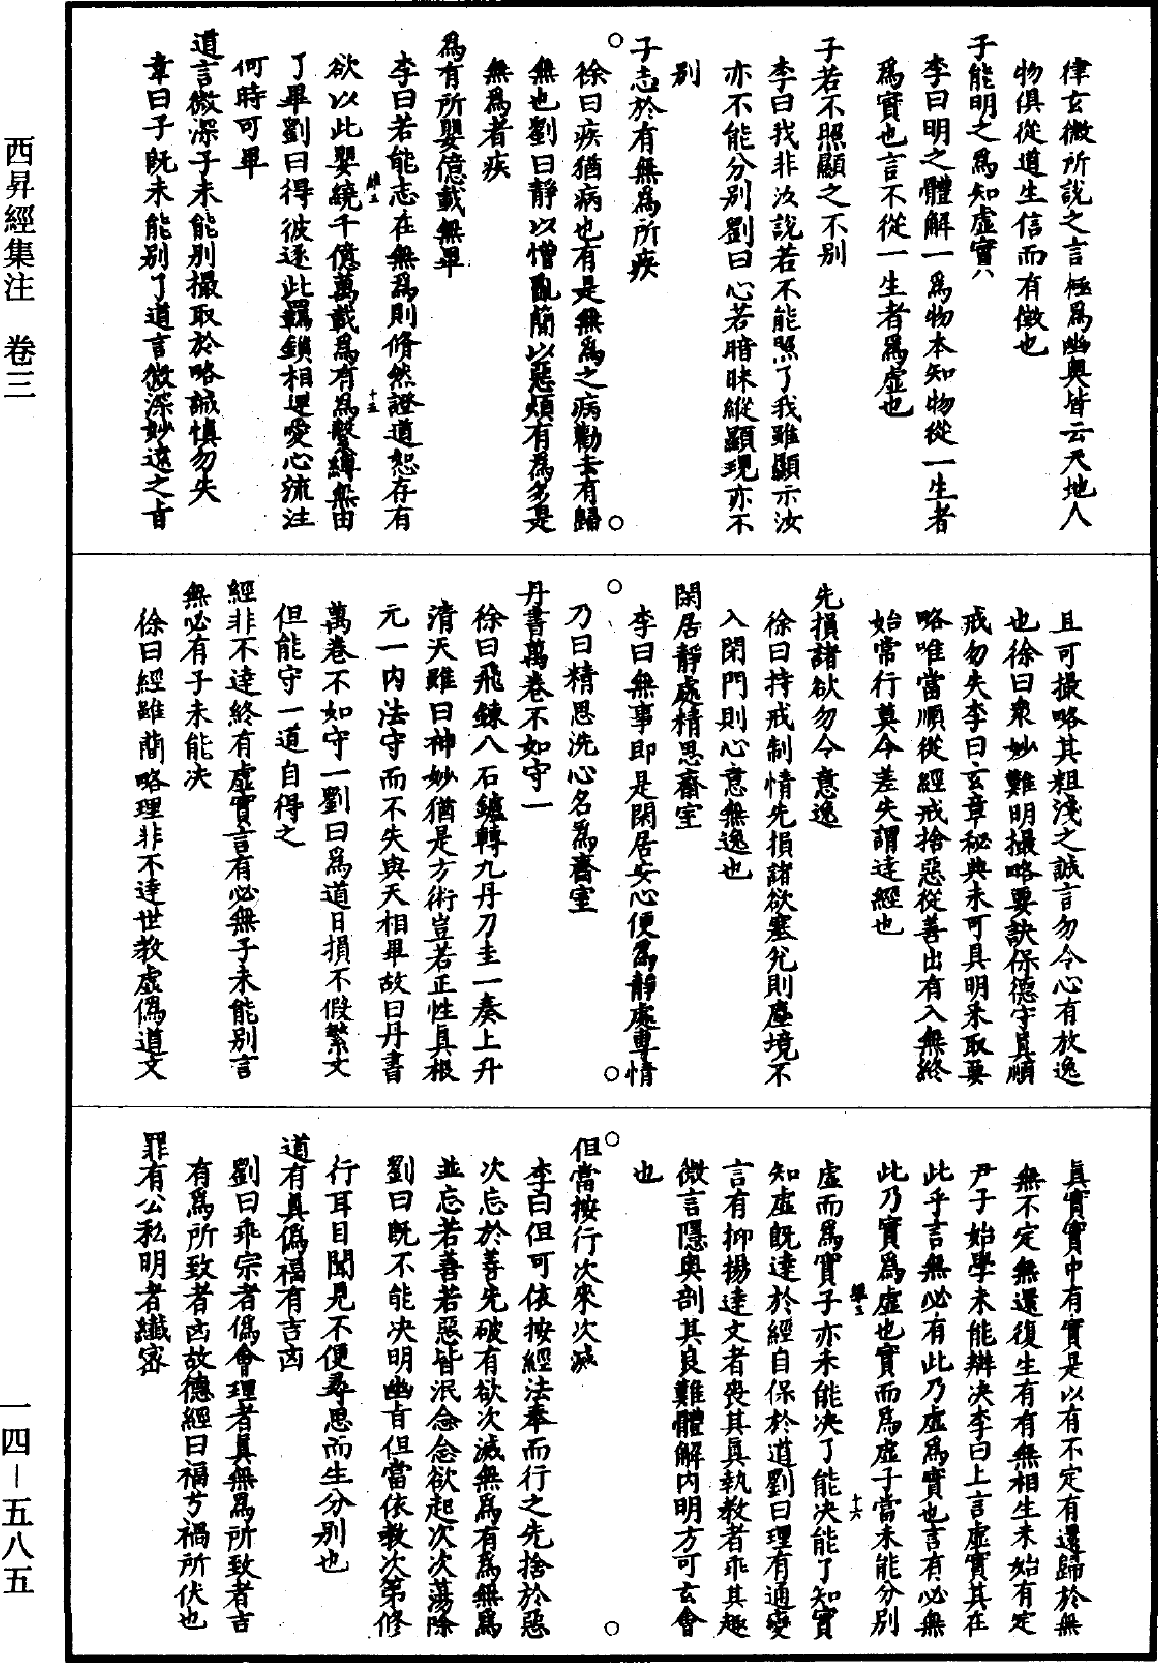 律玄微所說之言極爲幽奧皆云天地人
物俱從道生信而有徵也
子能明之爲知虛實八
李曰明之體解一爲物本知物從一生者
爲實也言不從一生者爲虛也
子若不照顯之不別
李曰我非汝說若不能照了我雖顯示汝
亦不能分別劉曰心若暗昧縱顯現亦不
別
子志於有無爲所疾
徐曰疾猶病也有是無爲之病勸去有歸
無也劉曰靜以憎亂簡以惡煩有爲多是
無爲者疾
爲有所嬰億載無畢
李曰若能志在無爲則脩然證道恕存有
欲以此嬰繞千億萬載爲有爲繫縛無由
了畢劉曰得彼逐此羈鎖相連愛心流注
何時可畢
道言微深子未能別撮取於略誠慎勿失
韋曰子既未能別了道言微深妙遠之旨
十五
且可撮略其粗淺之誠言勿令心有放逸
也徐曰衆妙難明撮略要訣保德守真順
戒勿失李曰玄章秘典未可具明采取要
略唯當順從經戒捨惡從善出有入無終
始常行莫令差失謂達經也
先損諸欲勿令意逸
徐曰持戒制情先損諸欲塞兌則塵境不
入閉門則心意無逸也
閑居靜處精思齋室
李曰無事即是閑居安心便爲靜處專情
乃曰精思洗心名爲齋室
丹書萬卷不如守一
徐曰飛鍊八石鑪轉九丹刀圭一奏上升
清天雖曰神妙猶是方術豈若正性真根
元一内法守而不失與天相畢故曰丹書
萬卷不如守一劉曰爲道日損不假繁文
但能守一道自得之
經非不達終有虛實言有必無子未能別言
無必有子未能決
徐曰經雖簡略理非不達世教虛僞道文
真實實中有實是以有不定有還歸於無
無不定無還復生有有無相生未始有定
尹子始學未能辨决李曰上言虛實其在
此乎言無必有此乃虛爲實也言有必無
此乃實爲虛也實而爲虛子當未能分別
虛而爲實子亦未能决了能決能了知實
十六
知虛既達於經自保於道劉曰理有通變
言有抑揚達文者喪其真執教者乖其趣
微言隱奧剖其良難體解内明方可玄會
也
但當按行次來次滅
李曰但可依按經法奉而行之先捨於惡
次忘於善先破有欲次滅無爲有爲無爲
並忘若善若惡皆泯念念欲起次次蕩除
劉曰既不能决明幽旨但當依教次第修
行耳目聞見不便尋思而生分別也
道有真僞福有吉凶
劉曰乖宗者僞會理者真無爲所致者吉
有爲所致者凶故德經曰福兮禍所伏也
罪有公私明者纖密
西昇經集注　卷三
一四－五八五